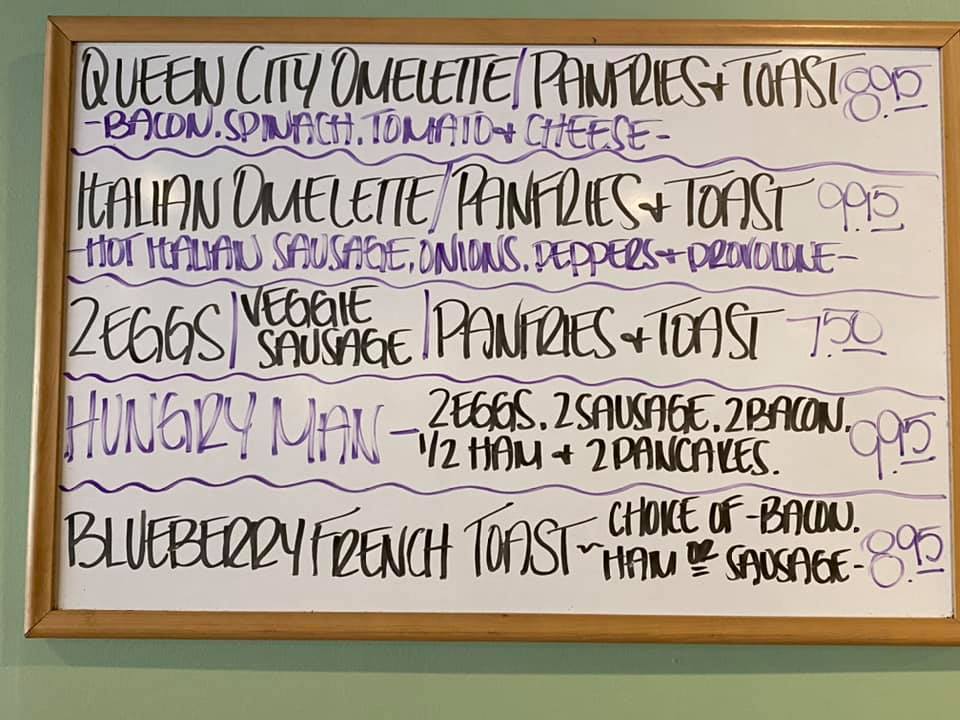 QUEEN CITY OMELETTE/PANFRIES + TOAST 8.95
-BACON. SPINACH. TOMATO + CHEESE-
ITALIAN OMELETTE/PANFRIES + TOAST 9.95
-HOT ITALIAN SAUSAGE. ONIONS. PEPPERS + PROVOLONE-
2 EGGS | VEGGIE SAUSAGE | PANFRIES + TOAST 7.50
HUNGRY MAN - 2 EGGS. 2 SAUSAGE. 2 BACON. 9.95
1/2 HAM + 2 PANCAKES.
BLUEBERRY FRENCH TOAST ~ CHOICE OF - BACON.
HAM OR SAUSAGE - 8.95